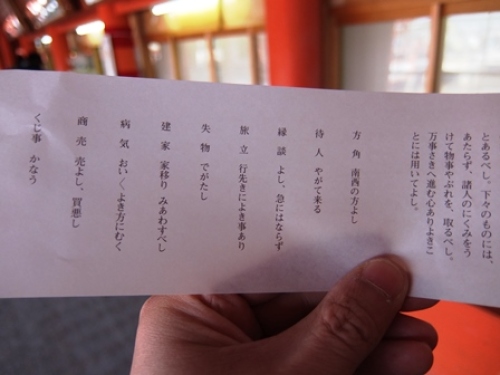 とあるべし、下々のものには、
あたらず、諸人のにくみをう
けて物事やぶれを、取るべし。
万事さきへ進む心ありよきこ
とには用いてよし。
方角 南西の方よし
待人 やがて来る
縁談 よし、急にはならず
旅立 行先きによき事あり
失物 でがたし
建家 家移り みあわすべし
病気 おい〱よき方にむく
商売 売よし、買悪し
くじ事 かなう